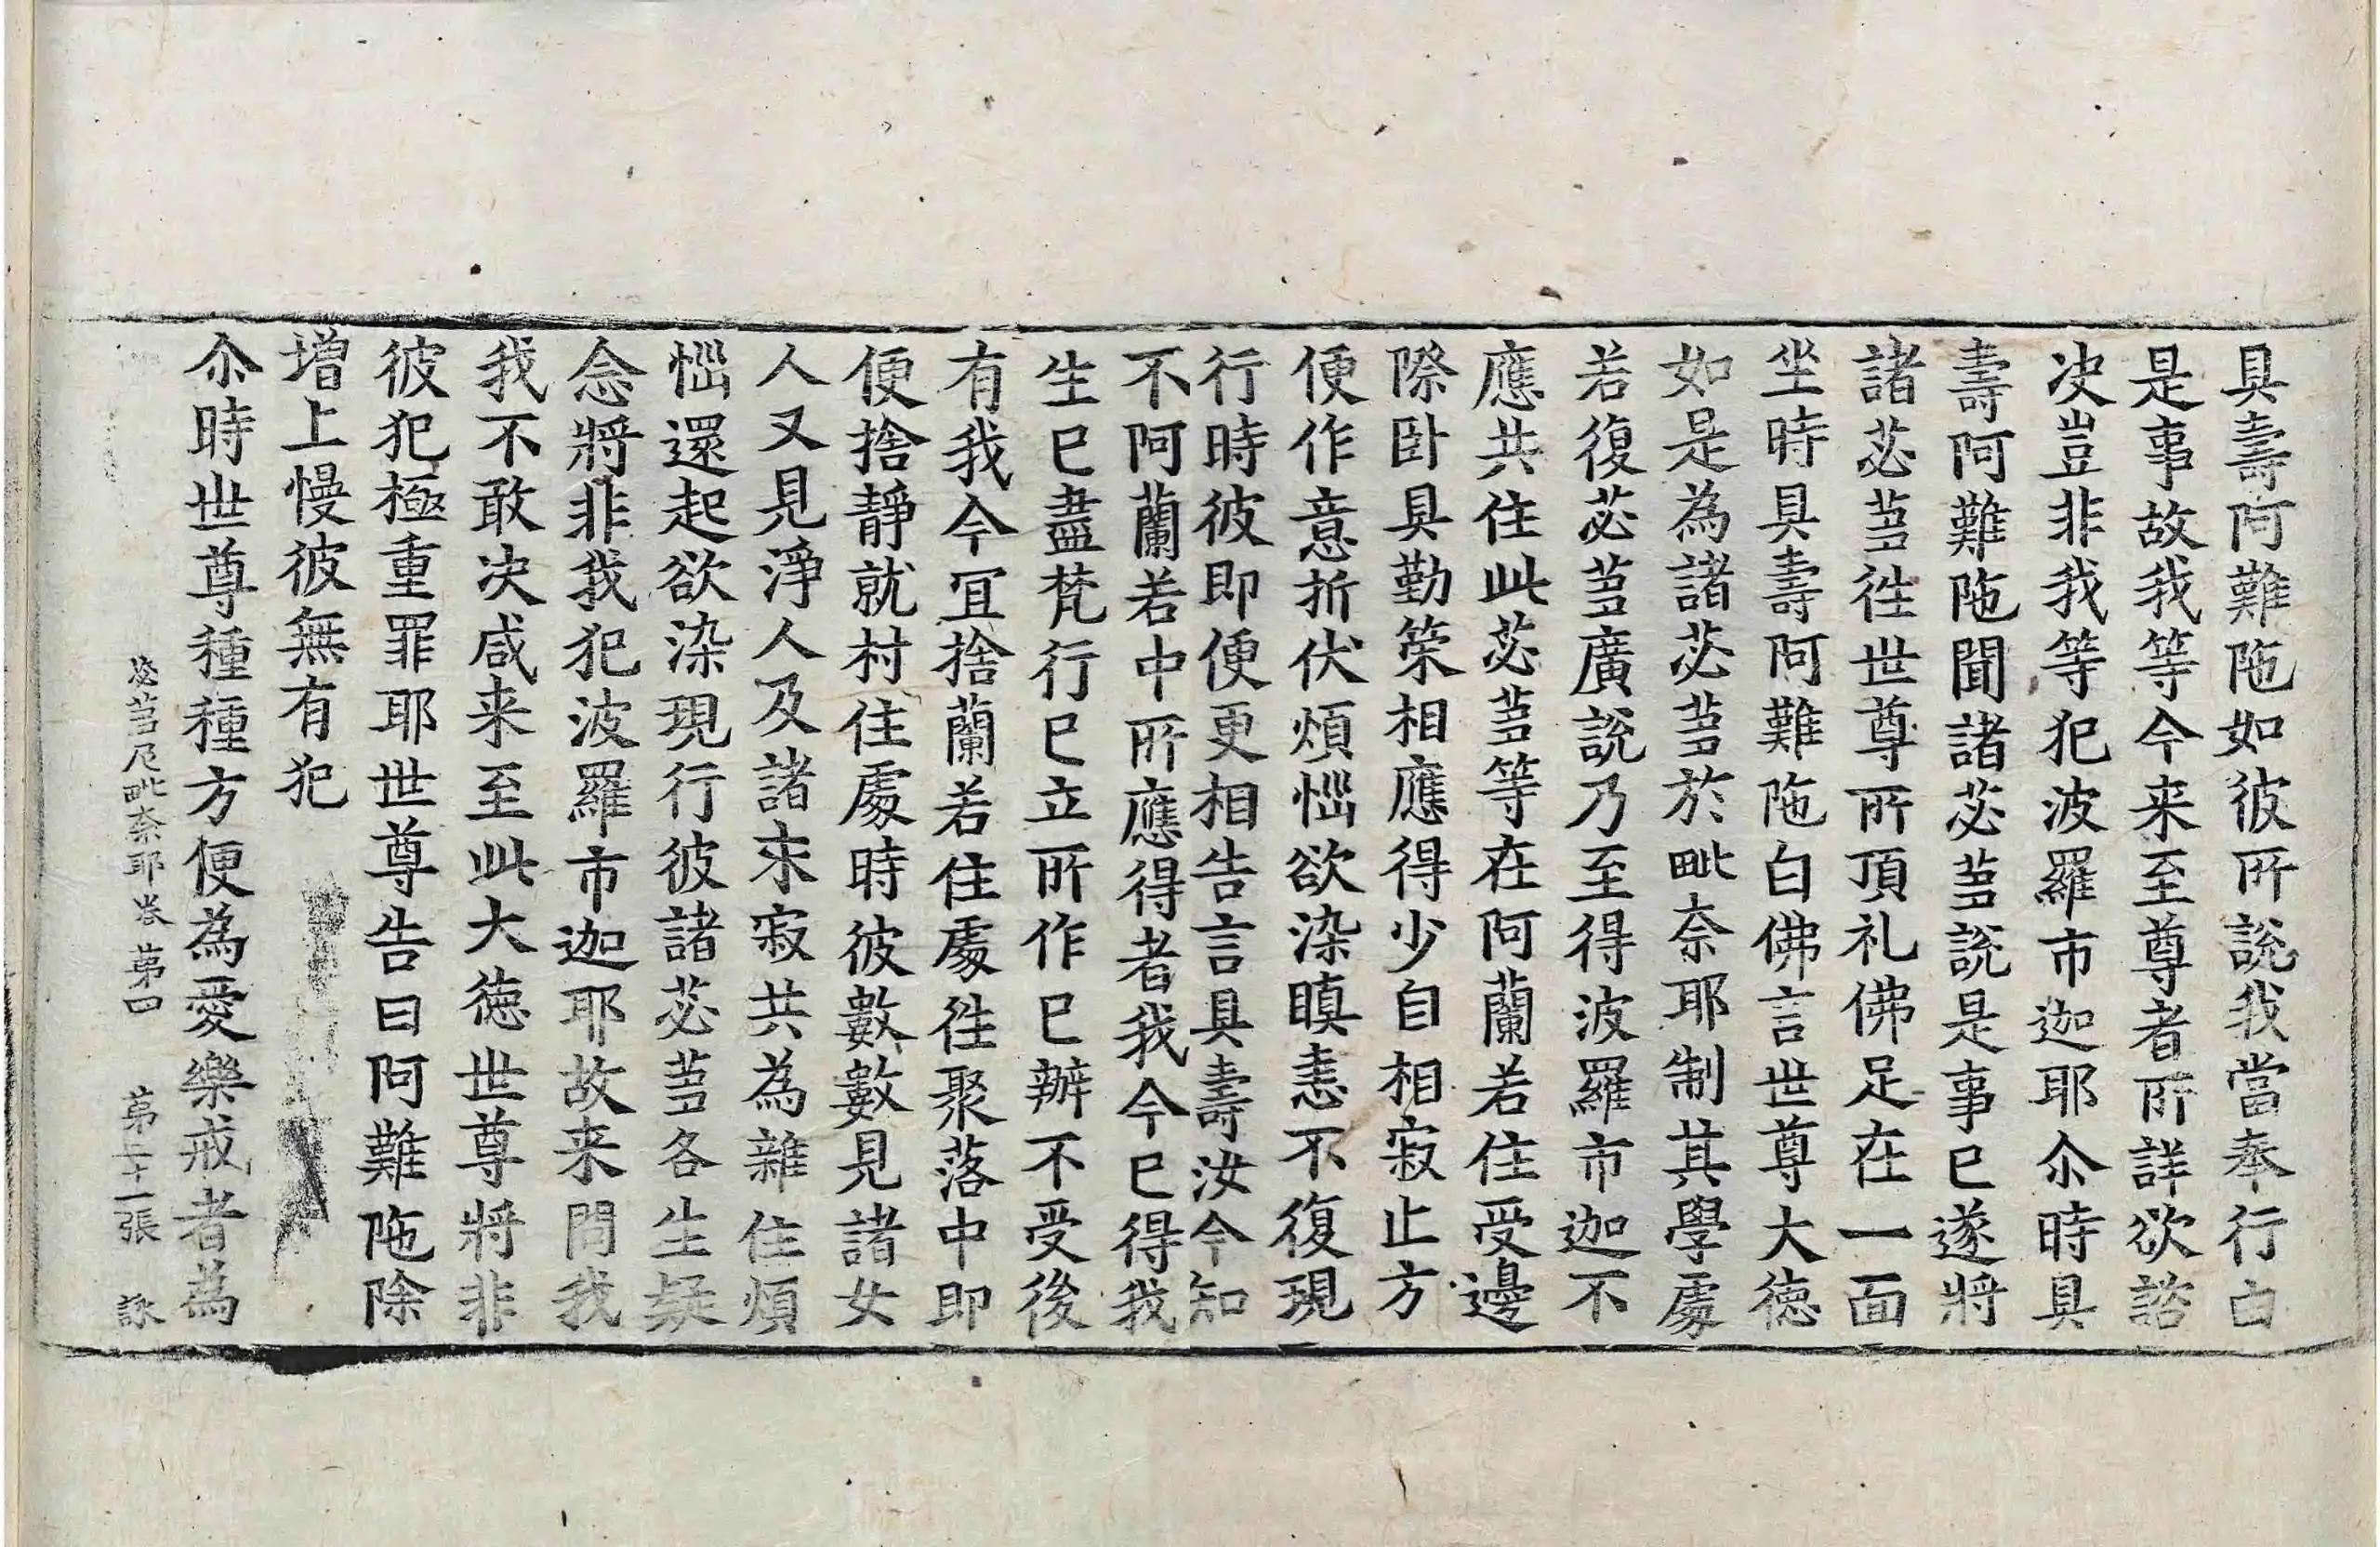 具壽阿難陁如彼所說我當奉行白
是事故我等今来至尊者所詳欲諮
决豈非我等犯波羅市迦耶尒時具
壽阿難陁聞諸苾蒭說是事已遂將
諸苾蒭徃世尊所頂礼佛足在一面
坐時具壽阿難陁白佛言世尊大德
如是為諸苾蒭於毗奈耶制其學處
若復苾蒭廣說乃至得波羅市迦不
應共住此苾蒭等在阿蘭若住受邊
際卧具勤策相應得少自相寂止方
便作意折伏煩惱欲染瞋恚不復現
行時彼即便更相告言具壽汝今知
不阿蘭若中所應得者我今已得我
生已盡梵行已立所作已辦不受後
有我今冝捨蘭若住處徃聚落中即
便捨靜就村住處時彼數數見諸女
人又見淨人及諸求寂共為雜住煩
惱還起欲染現行彼諸苾蒭各生疑
念將非我犯波羅市迦耶故来問我
我不敢决咸来至此大德世尊將非
彼犯極重罪耶世尊告曰阿難陁除
增上慢彼無有犯
尒時世尊種種方便為愛樂戒者為
苾蒭尼毗奈耶卷苐四 苐二十一張 詠